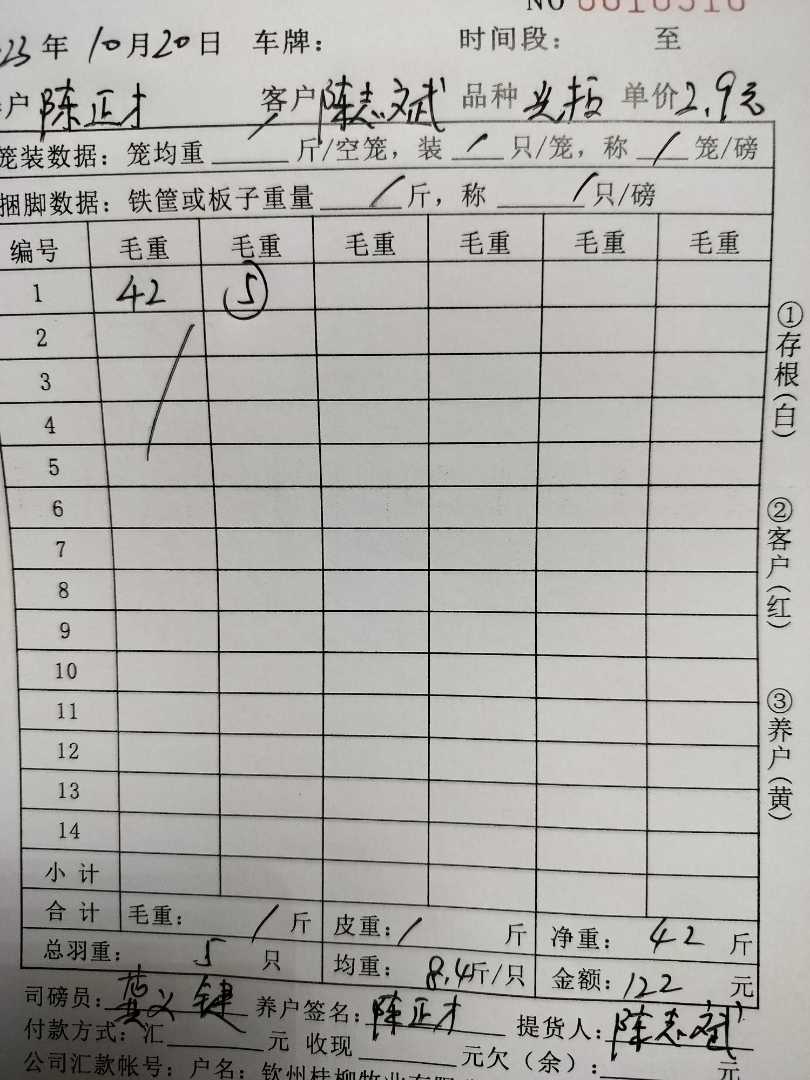 NO 0010316
23年10月20日 车牌: 时间段: 至
户 陈正才 客户 陈志斌 品种 单价2.9元
笼装数据: 笼均重 / 斤/空笼, 装 / 只/笼, 称 / 笼/磅
捆脚数据: 铁筐或板子重量 / 斤, 称 / 只/磅
编号 毛重 毛重 毛重 毛重 毛重 毛重
1 42 ⑤
2
3
4
5
6
7
8
9
10
11
12
13
14
小计
合计 毛重: / 斤 皮重: / 斤 净重: 42 斤
总羽重: 5 只 均重: 8.4斤/只 金额: 122 元
司磅员: 黄义健 养户签名: 陈正才 提货人: 陈志斌
付款方式: 汇 元 收现 元欠(余): 元
公司汇款帐号: 户名: 钦州桂柳牧业有限
①存根(白)
②客户(红)
③养户(黄)